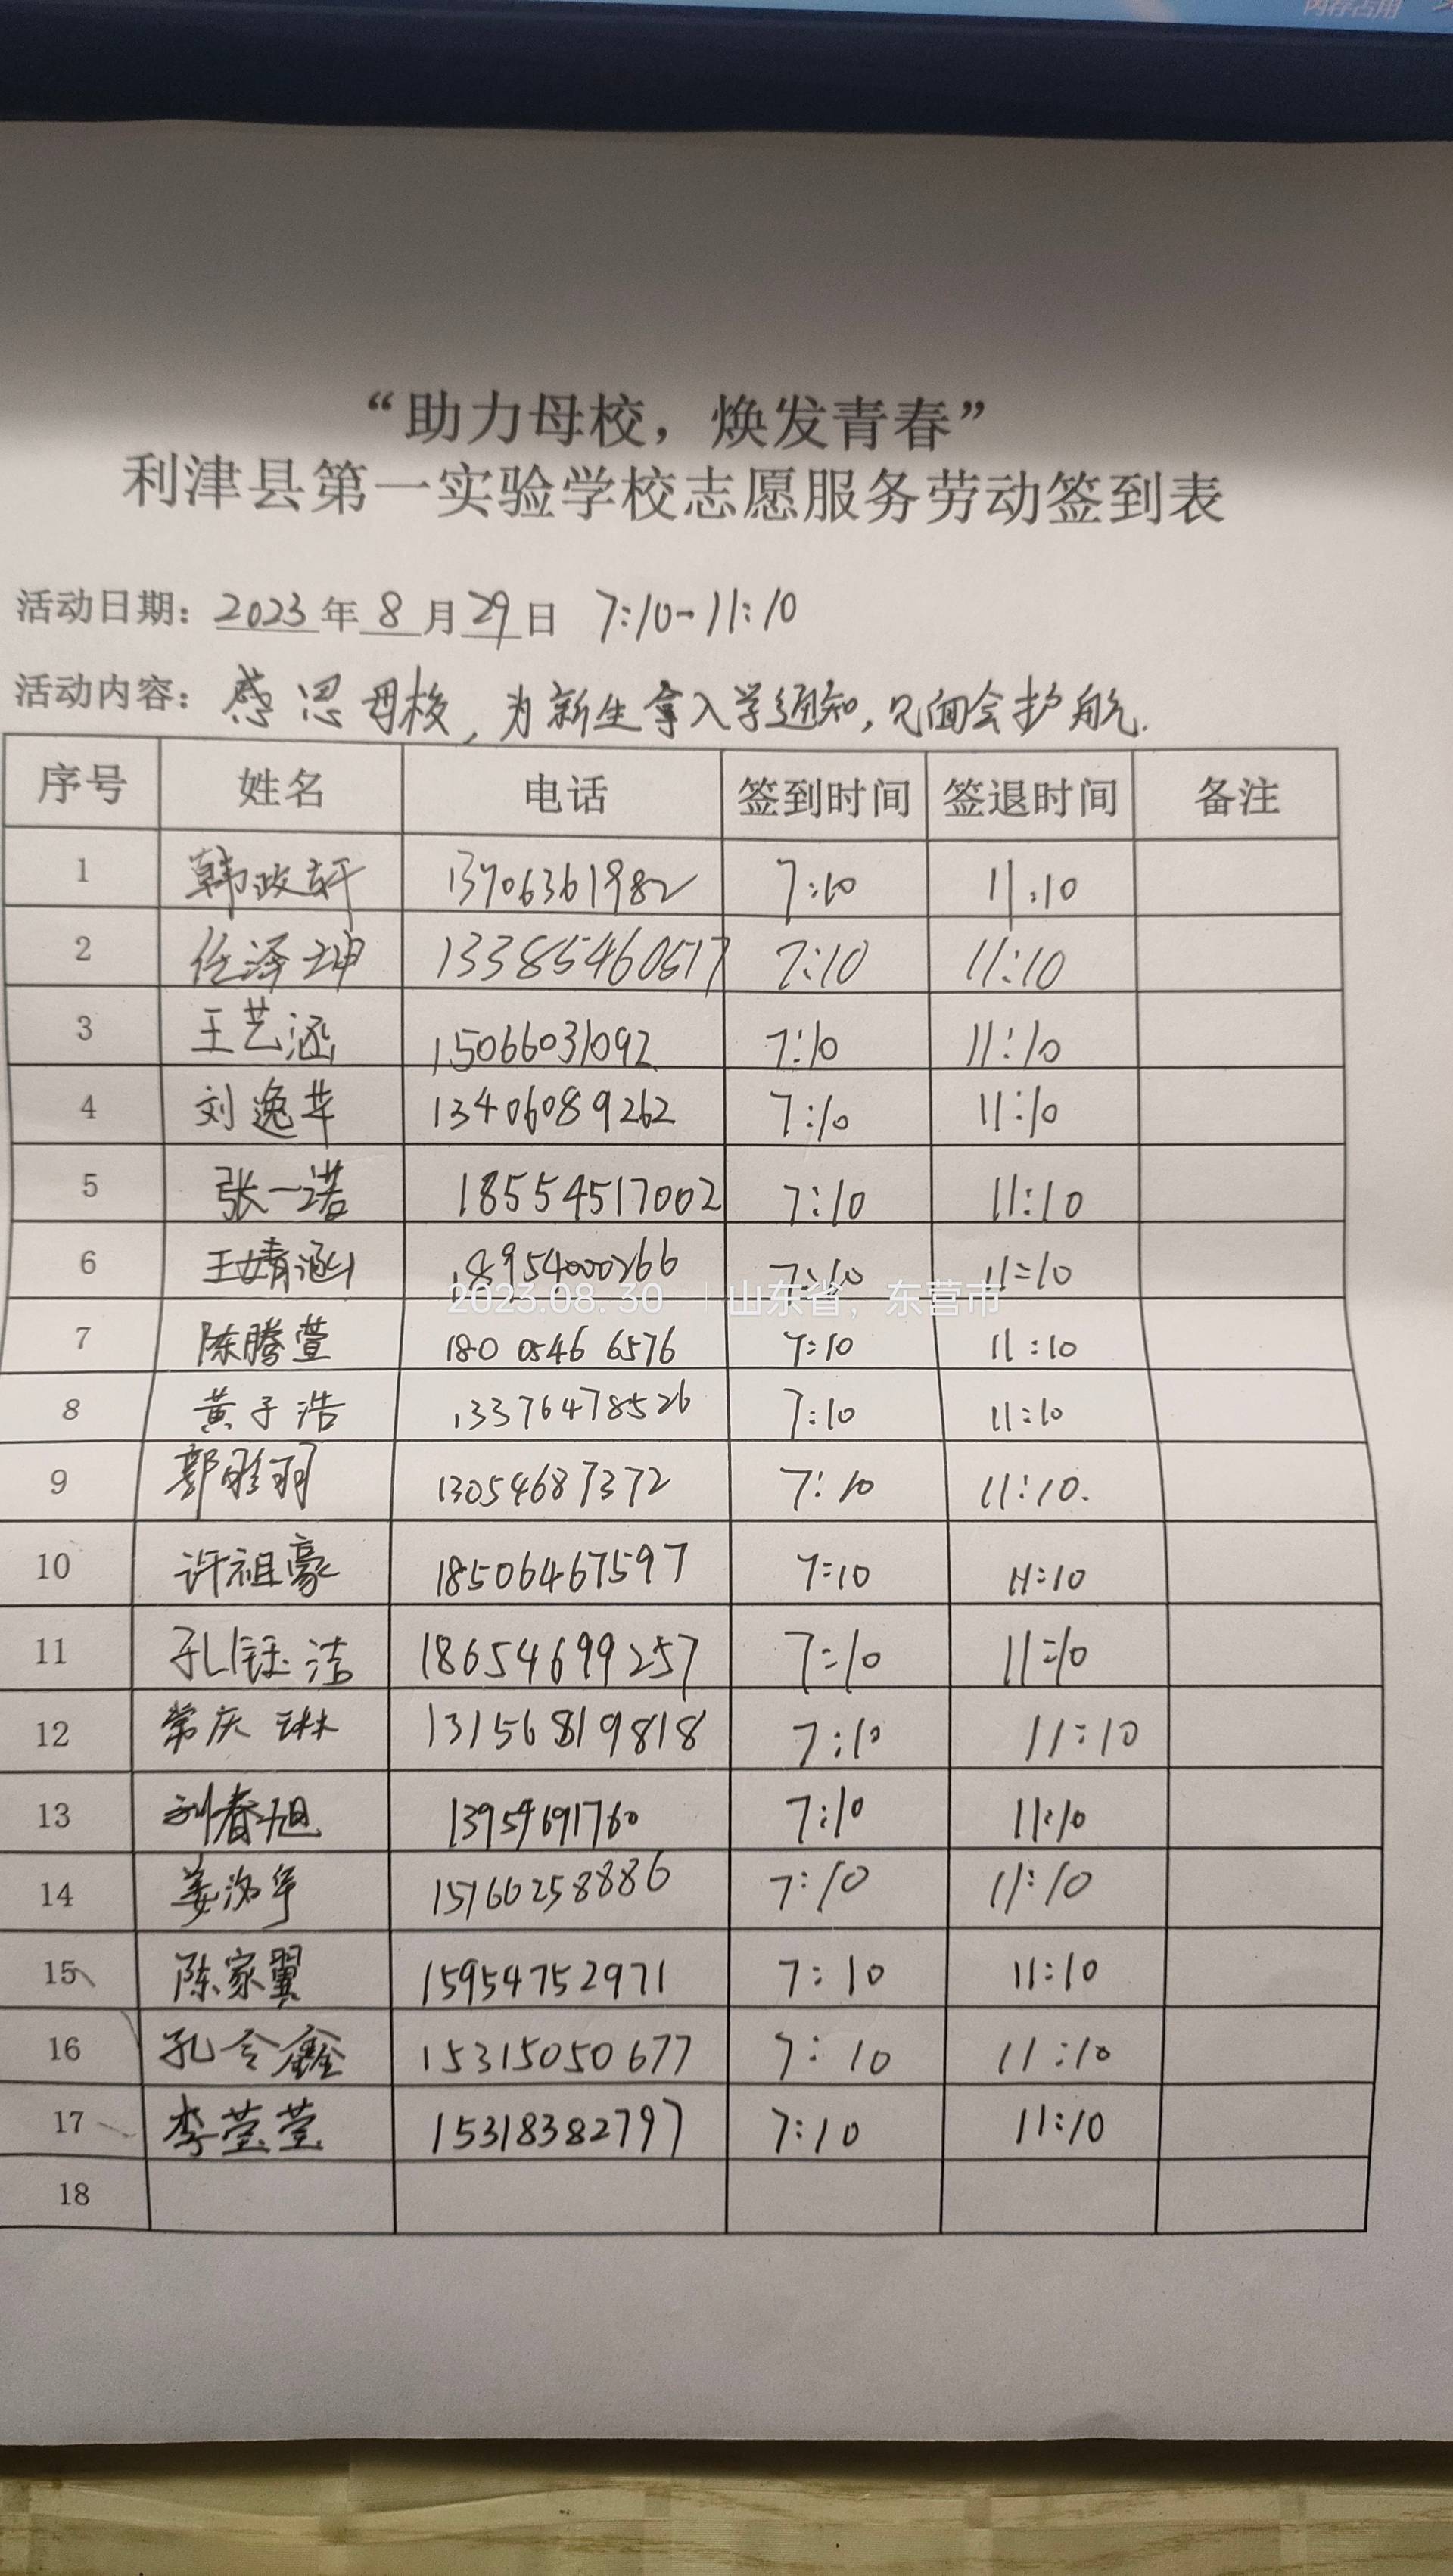 内存占用
“助力母校，焕发青春”
利津县第一实验学校志愿服务劳动签到表
活动日期：2023年8月29日 7:10-11:10
活动内容：感恩母校，为新生拿入学通知，见面会护航.
序号 姓名 电话 签到时间 签退时间 备注
1 韩政轩 13706361982 7:10 11:10
2 任泽坤 13385460517 7:10 11:10
3 王艺涵 15066031092 7:10 11:10
4 刘逸华 13406089262 7:10 11:10
5 张一诺 18554517002 7:10 11:10
6 王婧涵 18954000266 7:10 11:10
2023.08.30 | 山东省，东营市
7 陈腾萱 180 0546 6576 7:10 11:10
8 黄子浩 13376478526 7:10 11:10
9 郭 13054687372 7:10 11:10.
10 许祖豪 18506467597 7:10 11:10
11 孔钰洁 18654699257 7:10 11:10
12 常庆琳 13156819818 7:10 11:10
13 刘春旭 13954691760 7:10 11:10
14 姜 15166258886 7:10 11:10
15 陈家翼 15954752971 7:10 11:10
16 孔令鑫 15315050677 7:10 11:10
17 李莹莹 15318382797 7:10 11:10
18